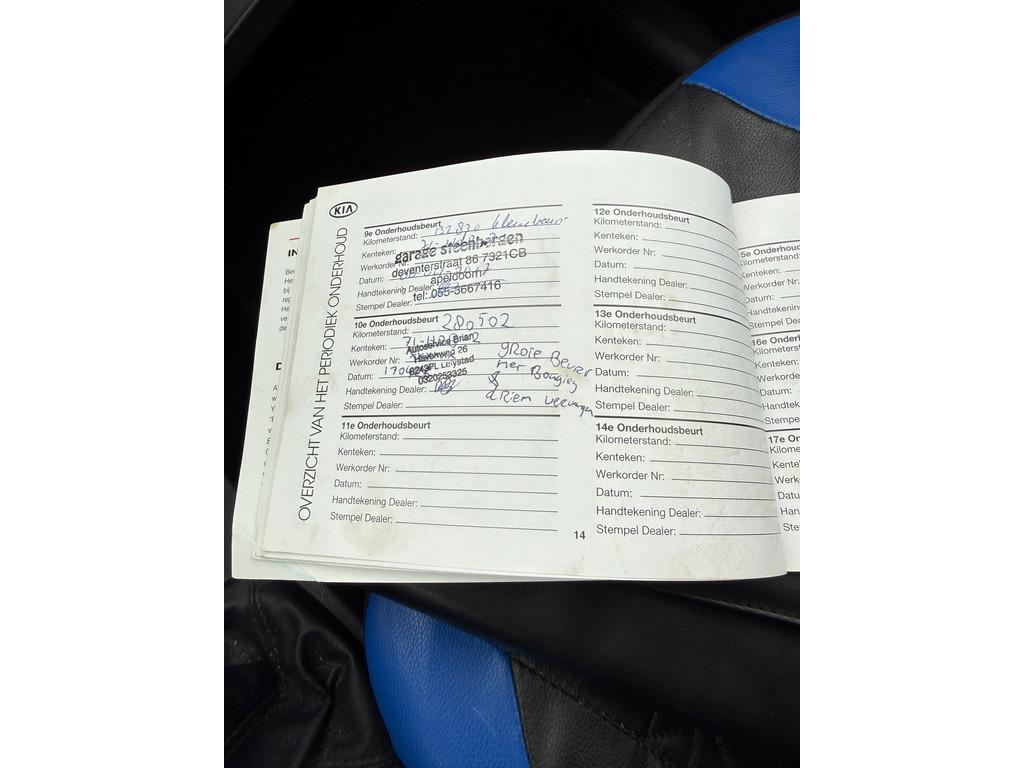 KIA
OVERZICHT VAN HET PERIODIEK ONDERHOUD
9e Onderhoudsbeurt
Kilometerstand: 132820 kleine beurt
Kenteken:
garage steenbergen
Werkorder Nr:
deventerstraat 86 7321CB
Datum:
apeldoorn
Handtekening Dealer:
tel: 055-3667416
Stempel Dealer:
10e Onderhoudsbeurt
Kilometerstand: 280502
Kenteken:
Autoservice Brian
Werkorder Nr:
Havenweg 26
Datum:
8243PL Lelystad
0320253325
Handtekening Dealer:
Stempel Dealer:
gRote Beurt
met Bougies
&
dRiem vervangen
11e Onderhoudsbeurt
Kilometerstand:
Kenteken:
Werkorder Nr:
Datum:
Handtekening Dealer:
Stempel Dealer:
14
12e Onderhoudsbeurt
Kilometerstand:
Kenteken:
Werkorder Nr:
Datum:
Handtekening Dealer:
Stempel Dealer:
13e Onderhoudsbeurt
Kilometerstand:
Kenteken:
Werkorder Nr:
Datum:
Handtekening Dealer:
Stempel Dealer:
14e Onderhoudsbeurt
Kilometerstand:
Kenteken:
Werkorder Nr:
Datum:
Handtekening Dealer:
Stempel Dealer:
5e Onderhoudsbeu
Kilometerstand:
Kenteken:
Werkorder Nr:
Datum:
Handtekening
Stempel Deale
16e Onderh
Kilometerst
Kenteken:
Werkorder
Datum:
Handteke
Stempel
17e On
Kilome
Kente
Werk
Datu
Han
Ste